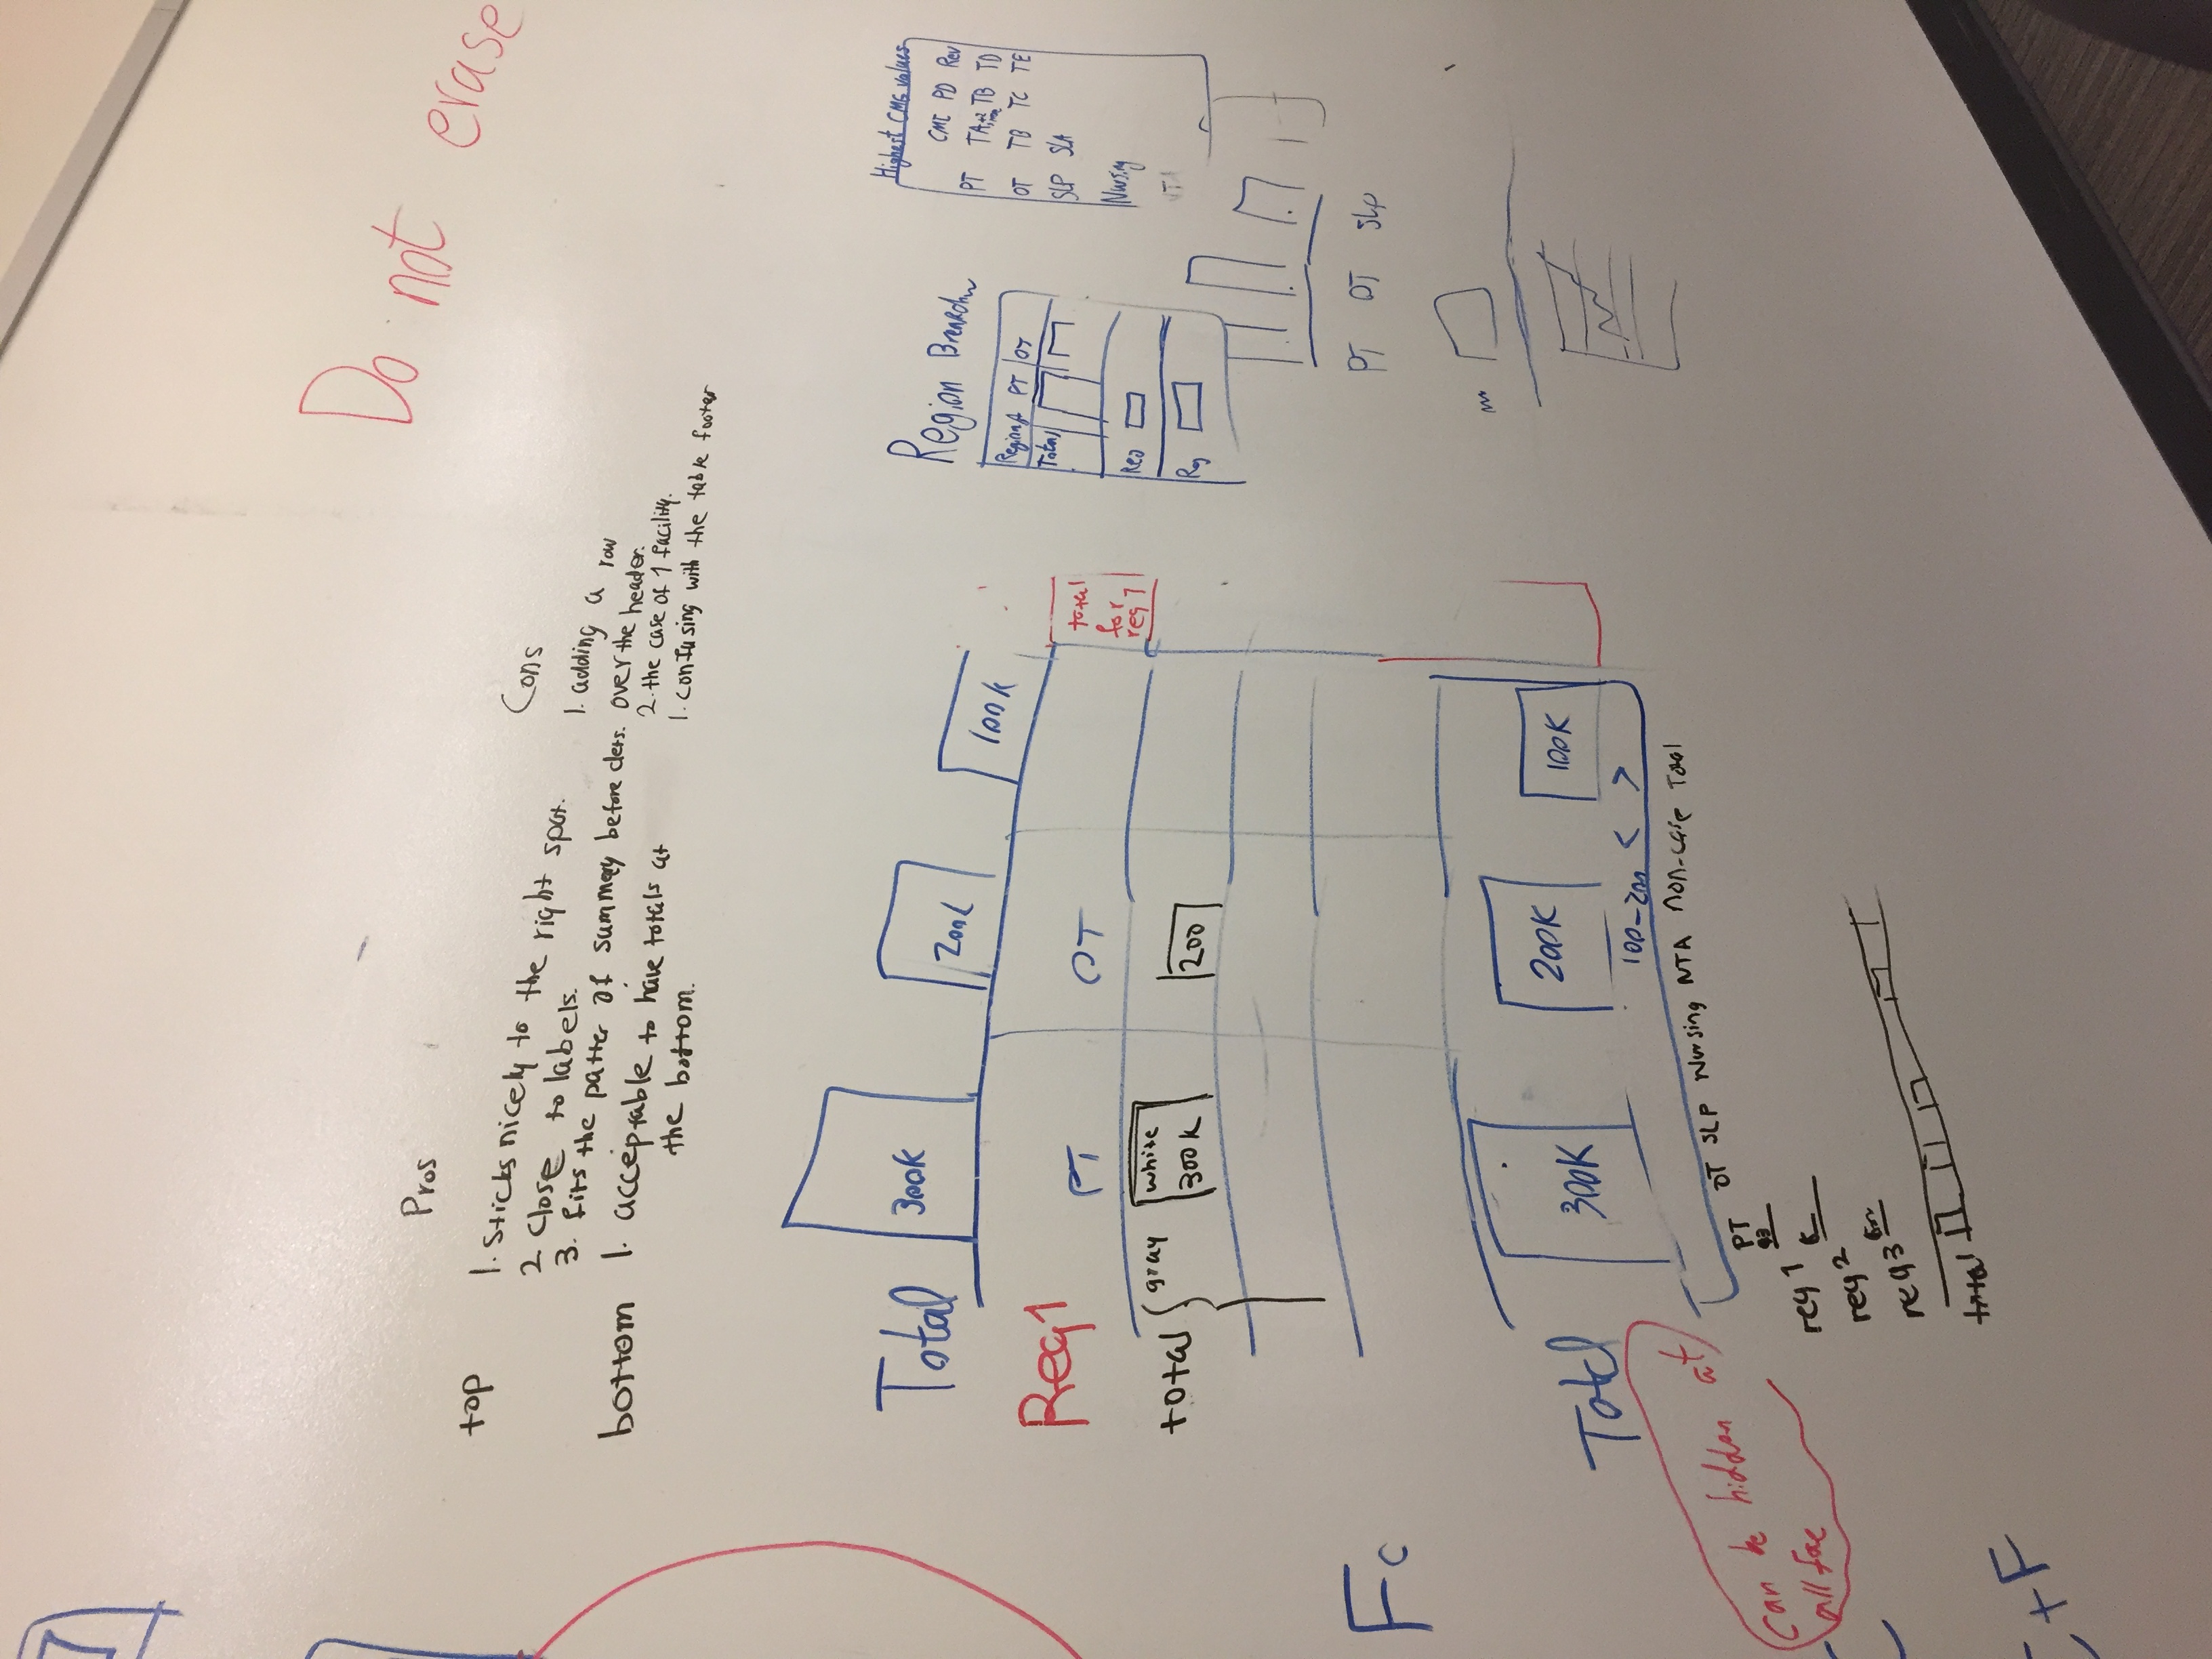 Do not erase
Pros
top
1. Sticks nicely to the right spot.
2 Close to labels.
3. fits the patter of summary before dets.
bottom
1. acceptable to have totals at
the bottom.
Cons
1. adding a row
over the header.
2. the case of 1 facility.
1. confusing with the table footer
Total
300K
200k
100k
Reg1
PT
OT
total
for
reg 1
total
gray
white
300K
200
Fc
Total
300K
200K
100K
100-200 < >
can be hidden at
all fac
PT OT SLP Nursing NTA Non-case Total
reg 1
reg 2
reg 3
total
+F
Region Breakdow
PT OT
Total
Reg
Reg
Highest CMG values
CMI PD Rev
PT TA TB TD
OT TB TC TE
SLP SLA
Nursing
NTA
PT OT SLP